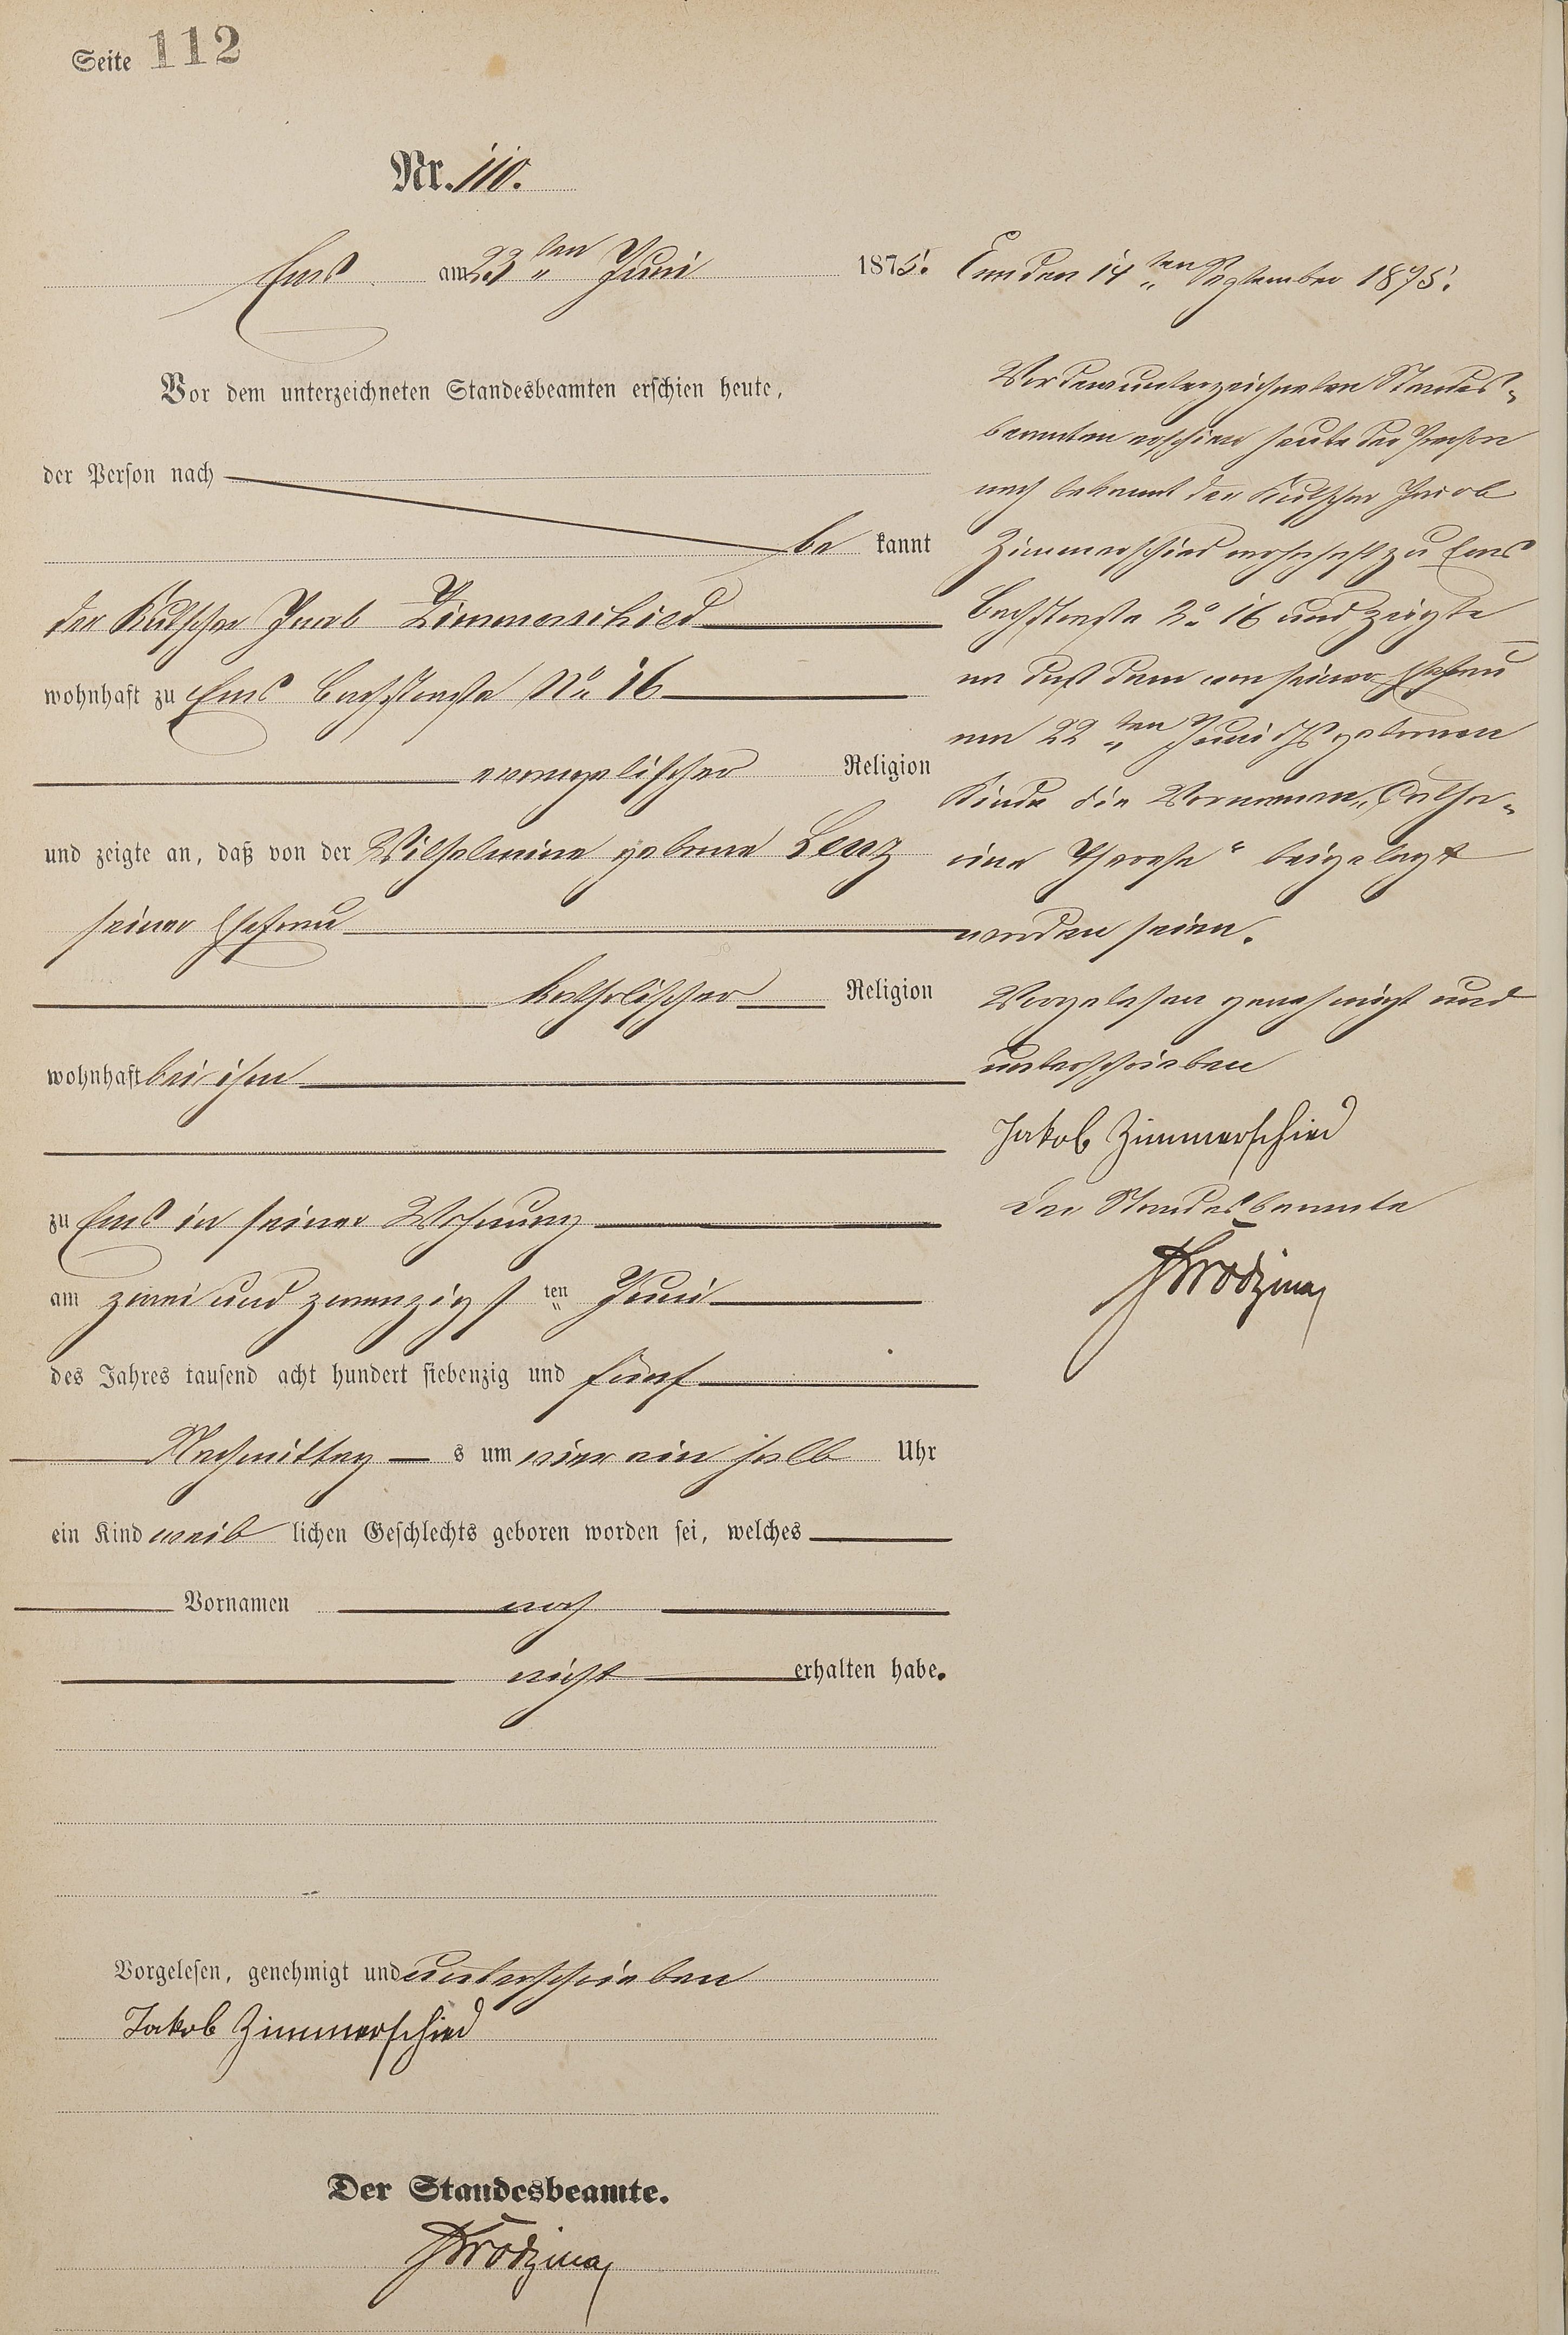 Seite 112
Nr. 110.
Ems am 23ten Juni 1875.
Vor dem unterzeichneten Standesbeamten erschien heute,
der Person nach
be kannt
der Kutscher Jacob Zimmerschied
wohnhaft zu Ems Bachstraße No 16
evangelischer Religion
und zeigte an, daß von der Wilhelmine geborne Lenz
seiner Ehefrau
katholischer Religion
wohnhaft bei ihm
zu Ems in seiner Wohnung
am zwei und zwanzigsten Juni
des Jahres tausend acht hundert siebenzig und fünf
Nachmittag s um vier ein halb Uhr
ein Kind weib lichen Geschlechts geboren worden sei, welches
Vornamen noch
nicht erhalten habe.
Vorgelesen, genehmigt und unterschrieben
Jakob Zimmerschied
Der Standesbeamte.
Ems den 14ten September 1875.
Vor dem unterzeichneten Standes-
beamten erschien heute der Person
nach bekannt der Kutscher Jacob
Zimmerschied wohnhaft zu Ems
Bachstraße No 16 und zeigte
an daß dem von seiner Ehefrau
am 22ten Juni ds geborenen
Kinde die Vornamen „Catha-
rina Therese" beigelegt
worden seien.
Vorgelesen genehmigt und
unterschrieben
Jakob Zimmerschied
Der Standesbeamte